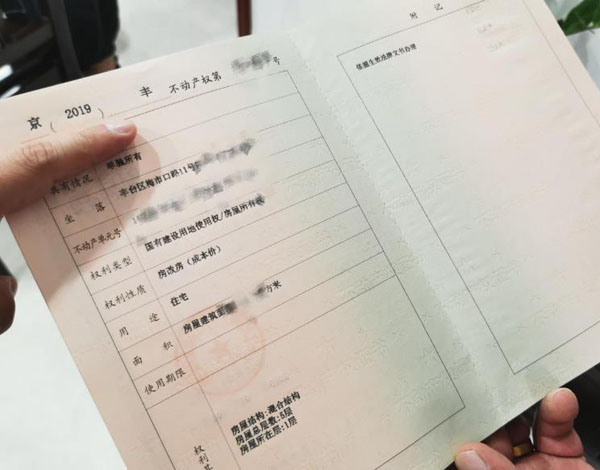 京 ( 2019 ) 丰 不动产权第 号
共有情况 单独所有
坐落 丰台区梅市口路11号
不动产单元号
权利类型 国有建设用地使用权/房屋所有权
权利性质 房改房(成本价)
用途 住宅
面积 房屋建筑面 方米
使用期限
权利其
房屋结构:混合结构
房屋总层数:5层
房屋所在层:1层
附记
依据生效法律文书办理